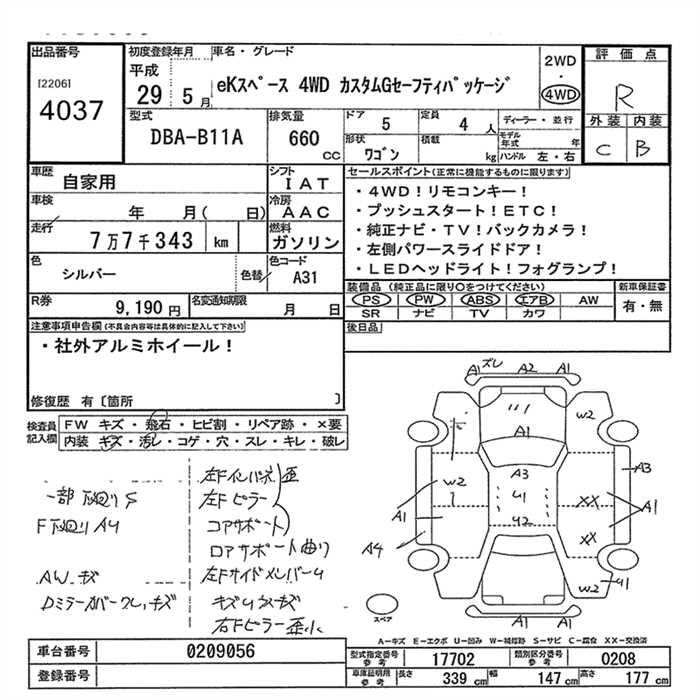 出品番号
[2206]
4037
初度登録年月
平成
29 5月
車名・グレード
eKスペース 4WD カスタムGセーフティパッケージ
2WD
・
4WD
評価点
R
外装 内装
C B
型式
DBA-B11A
排気量
660 CC
ドア 5
定員 4人
形状 ワゴン
積載 kg
ディーラー・並行
モデル年式 年
ハンドル 左・右
車歴 自家用
シフト IAT
車検 年 月( 日)
冷房 AAC
走行 7万7千343 km
燃料 ガソリン
色 シルバー
色替
色コード A31
R券 9,190円
名変通知期限 月 日
セールスポイント(正常に機能するものに限ります)
・4WD!リモコンキー!
・プッシュスタート!ETC!
・純正ナビ・TV!バックカメラ!
・左側パワースライドドア!
・LEDヘッドライト!フォグランプ!
装備品(純正品に限り○をつけてください)
PS PW ABS エアB AW
SR ナビ TV カワ
新車保証書
有・無
後日品
注意事項申告欄(不具合内容等は具体的に記入して下さい)
・社外アルミホイール!
修復歴 有〔箇所 〕
検査員記入欄
FW キズ・飛石・ヒビ割・リペア跡・×要
内装 キズ・汚レ・コゲ・穴・スレ・キレ・破レ
一部下廻りS
F下廻りAU
AW キズ
左Fインパネ歪
左Fピラー
コアサポート
ロアサポート曲り
左FサイドメンバーU
右Fピラー歪小
A1 ズレ A2 A1
W2
A1
A3
U1
U2
W2
A1
A4
XX
XX
A3
A1
W2
U1
A1 A1
スペア
A-キズ E-エクボ U-凹み W-補修跡 S-サビ C-腐食 XX-交換済
車台番号 0209056
登録番号
型式指定番号 参考 17702
類別区分番号 参考 0208
車庫証明用 参考 長さ 339 cm 幅 147 cm 高さ 177 cm